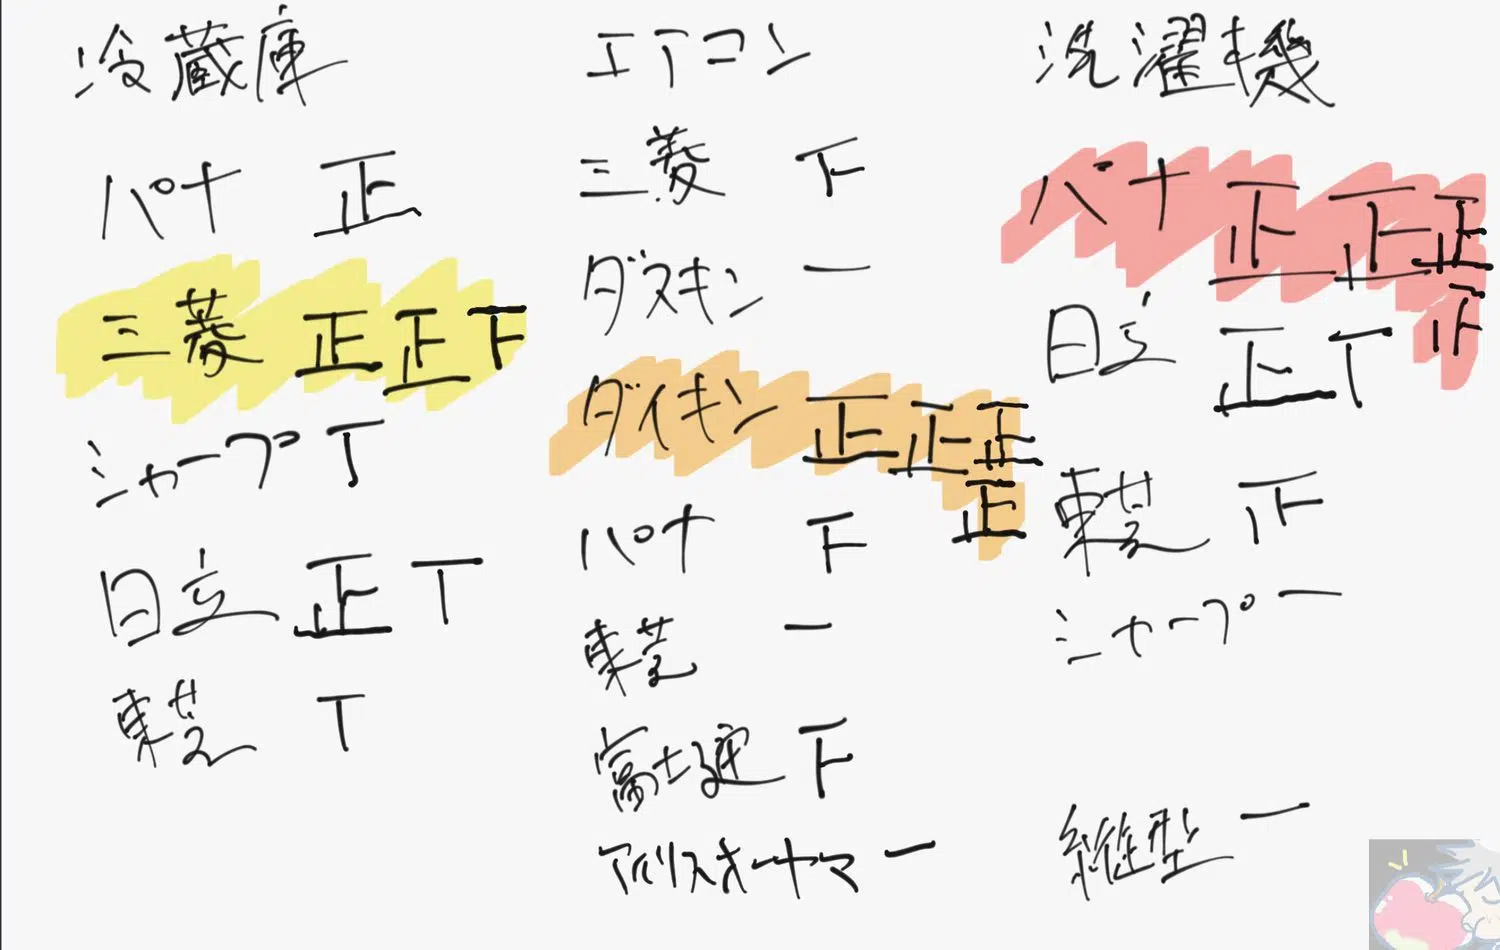 冷蔵庫
パナ 正
三菱 正正下
シャープ T
日立 正T
東芝 T
エアコン
三菱 下
ダスキン 一
ダイキン 正正正
正
パナ 下
東芝 一
富士通 下
アイリスオーヤマ 一
洗濯機
パナ 正正正
日立 正T
東芝
シャープ 一
縦型 一